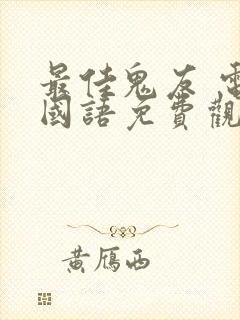 最佳鬼友 電
國語免費觀
黃鴈西